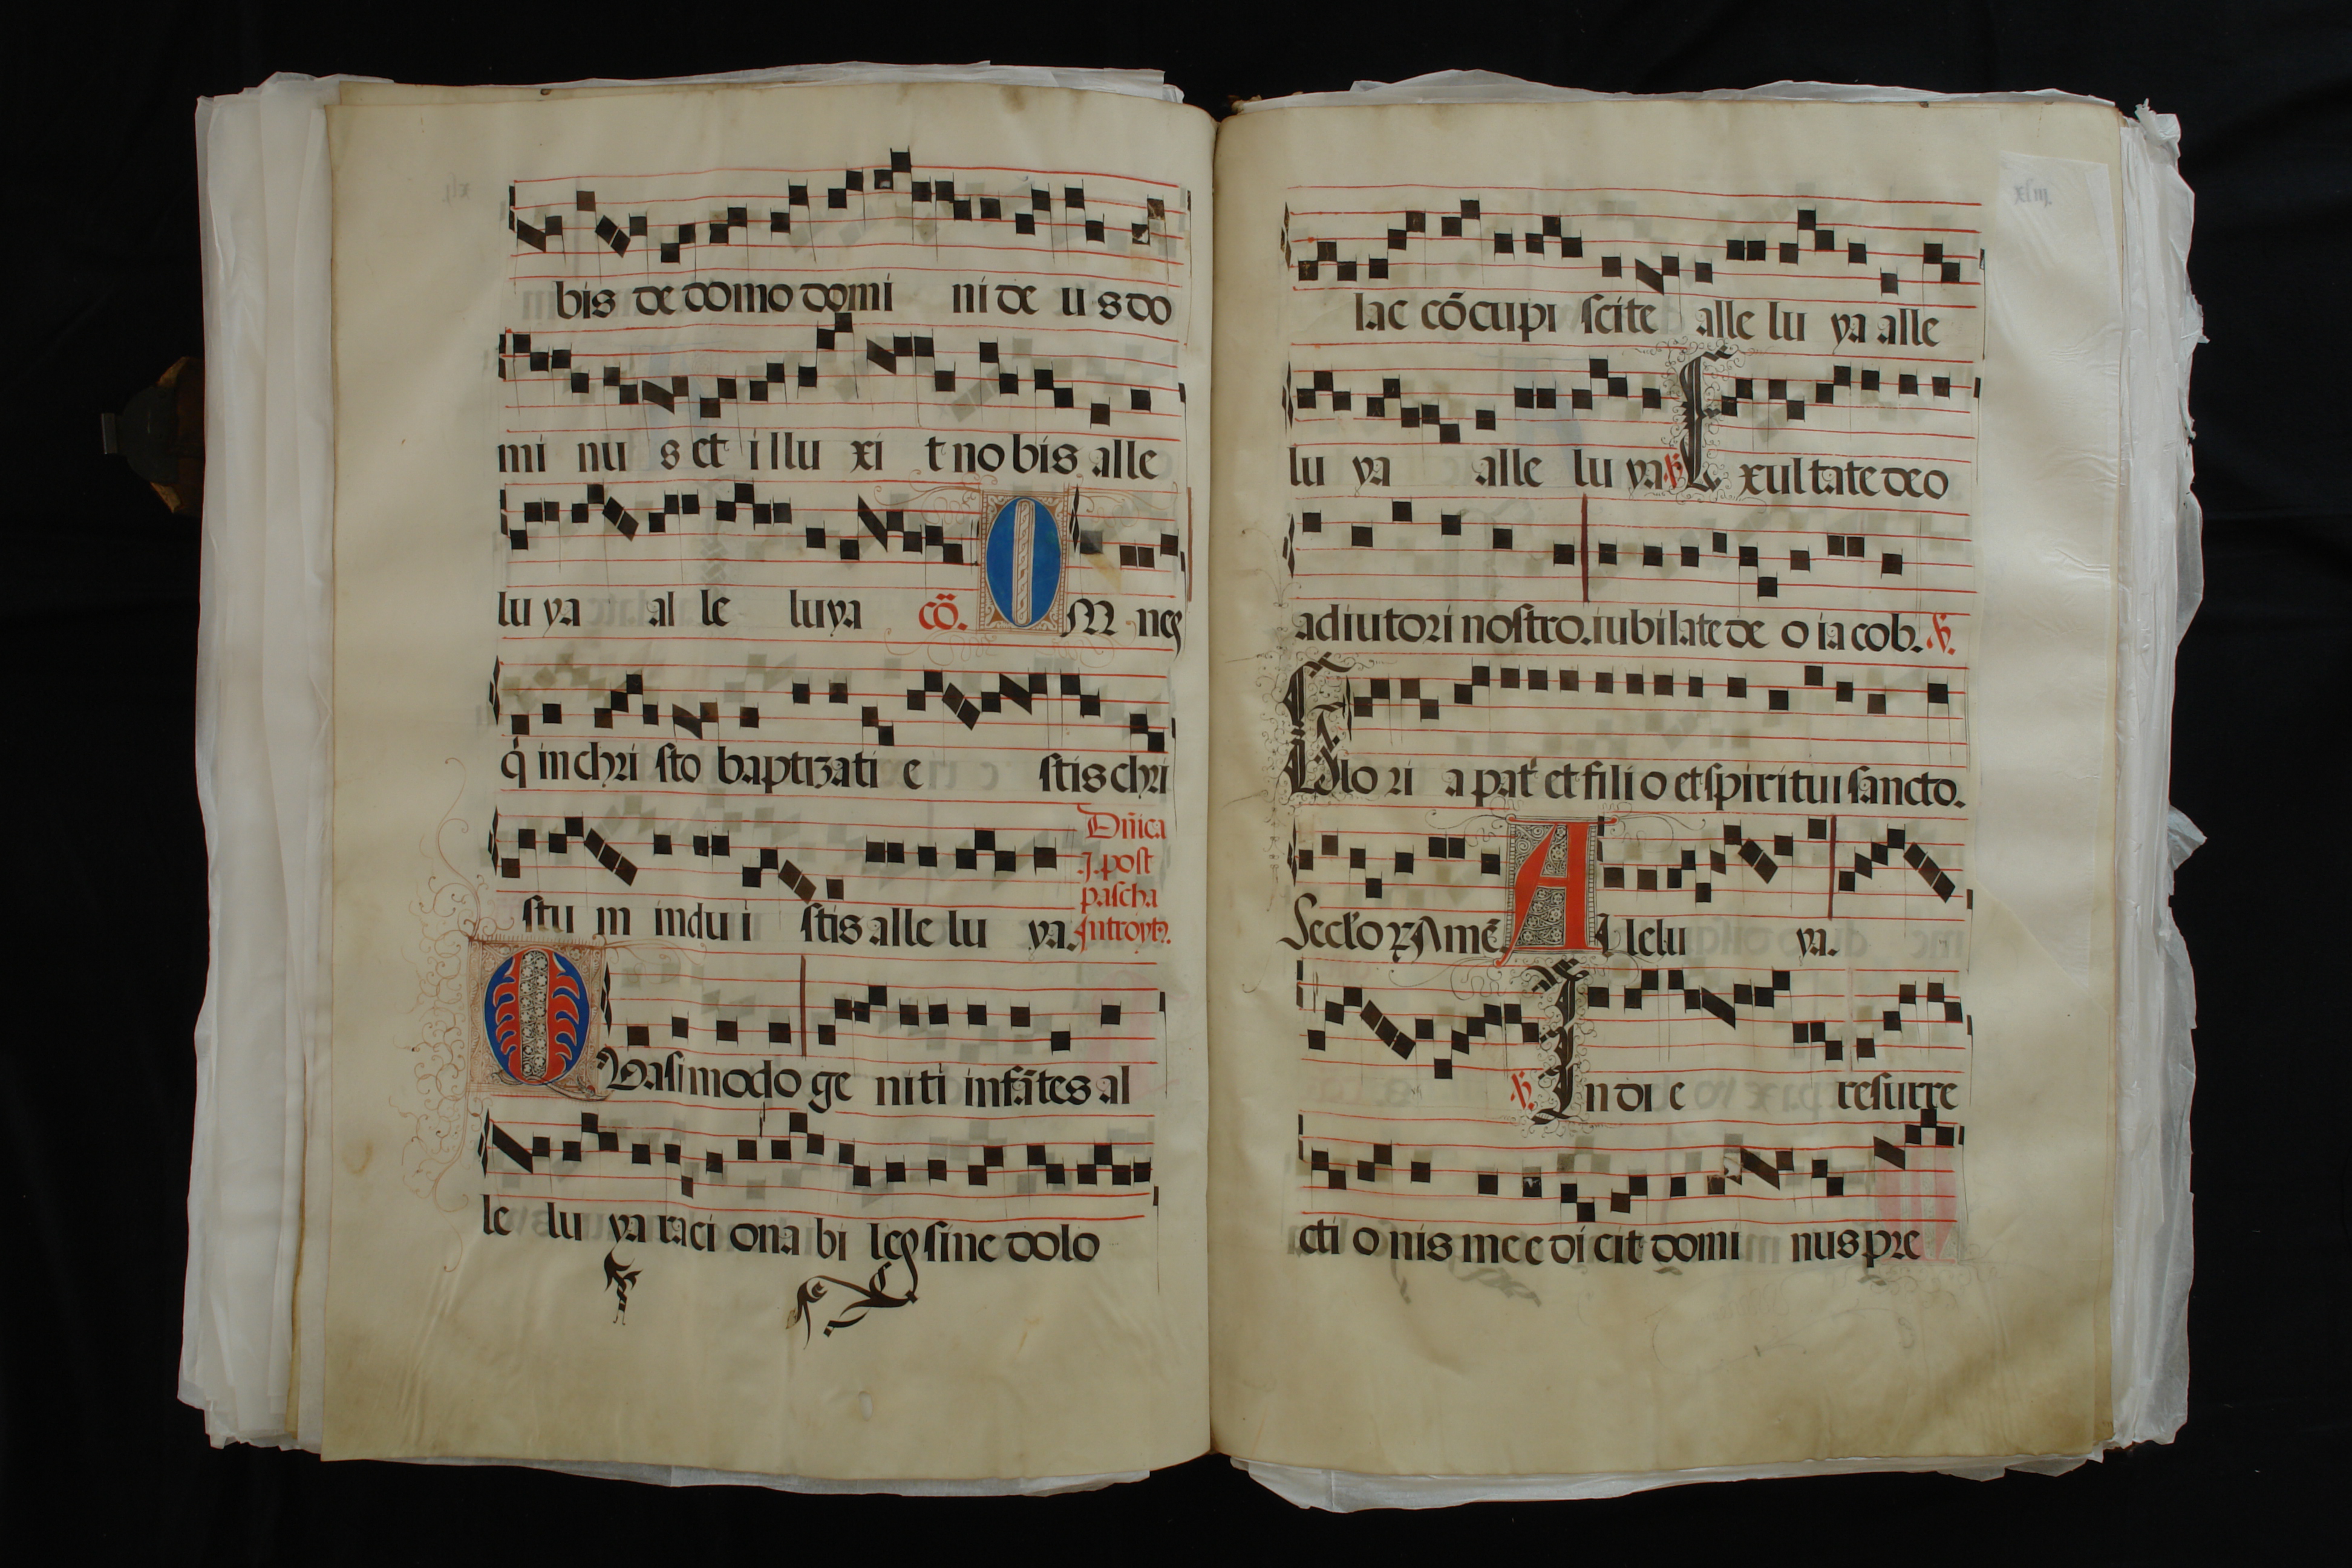 bis de domo domi ni de u s do
mi nu s et i llu xi t no bis alle
lu ya al le luya cō. O M nes
q̇ in chri sto baptizati e stis chri
stu m indu i stis alle lu ya. Dn̄ica
j. post
pascha
Introytꝰ.
Q Vasi modo ge niti infātes al
le lu ya raci ona bi les sine dolo
xliij.
lac cōcupi scite alle lu ya alle
lu ya alle lu ya. ℣. E xultate deo
adiutori nostro. iubilate de o iacob. ℣.
Glo ri a pat̉ et fili o et spiritui sancto.
Seclo ꝝ Amē. A Llelu ya.
℣. In di e resurre
cti o nis me e di cit domi nus pre